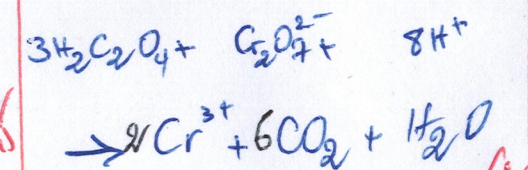 3H₂C₂O₄ + Cr₂O₇²⁻ + 8H⁺
→ 2Cr³⁺ + 6CO₂ + H₂O